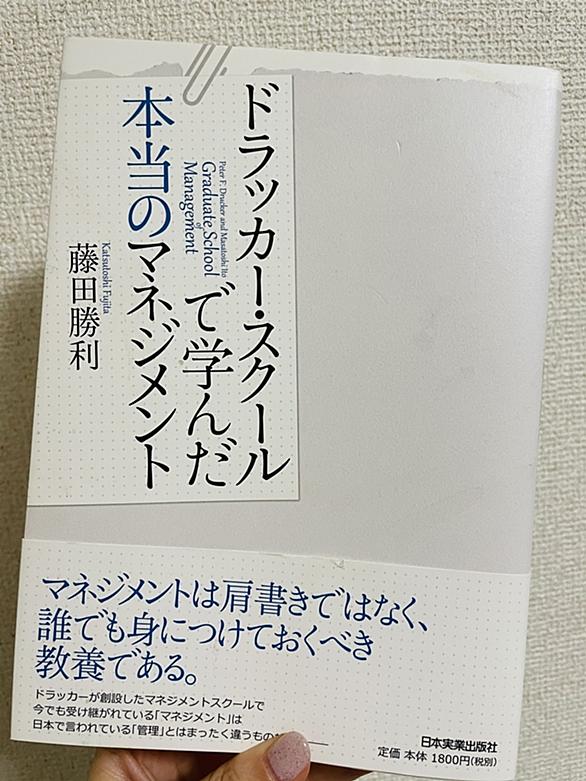 ドラッカー・スクール
で学んだ
本当のマネジメント
Peter F. Drucker and Masatoshi Ito
Graduate School
of
Management
Katsutoshi Fujita
藤田勝利
マネジメントは肩書きではなく、
誰でも身につけておくべき
教養である。
ドラッカーが創設したマネジメントスクールで
今でも受け継がれている「マネジメント」は
日本で言われている「管理」とはまったく違うもの
日本実業出版社
定価 本体 1800円(税別)